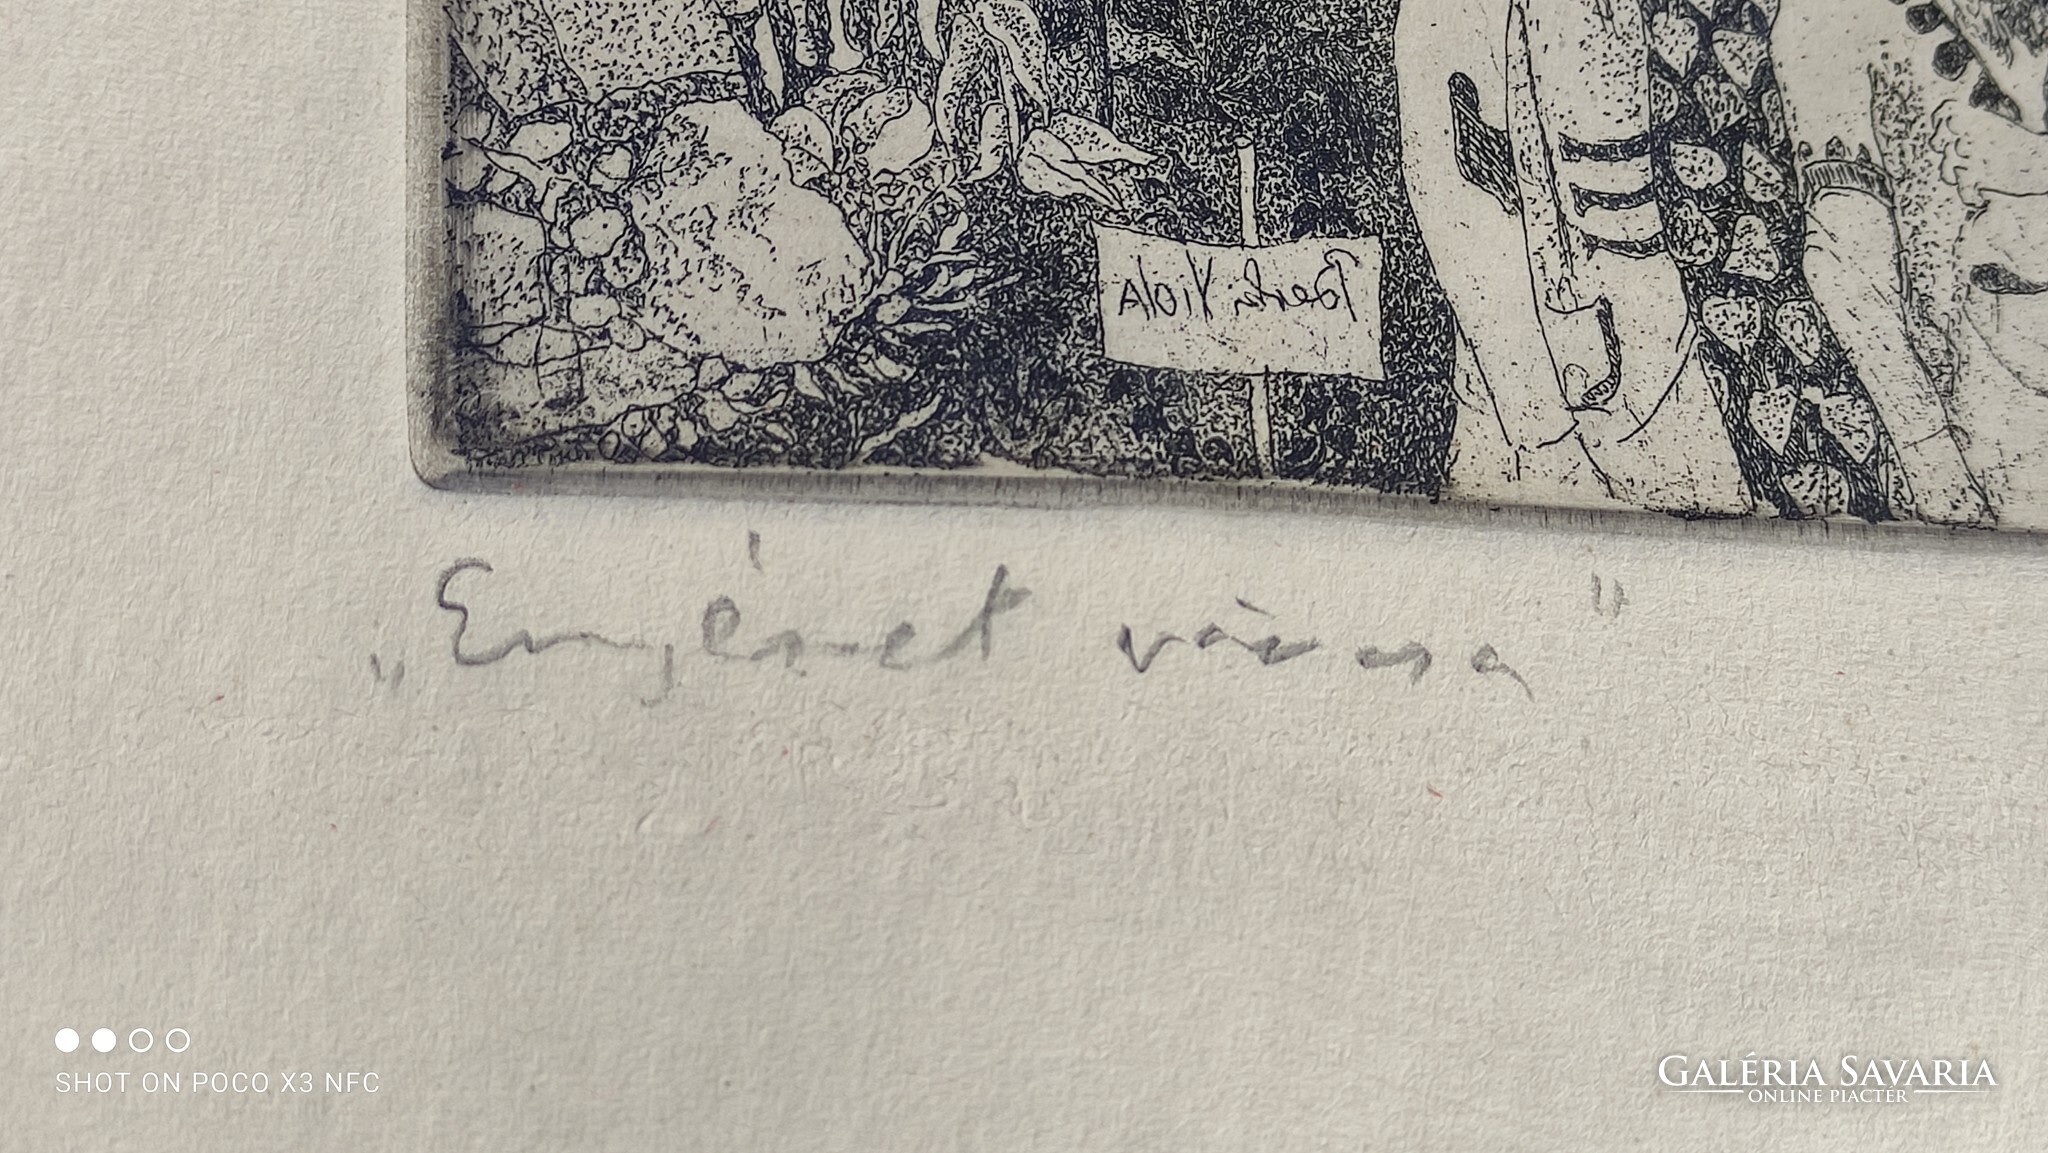 Berta ViolA
„Enyészet városa"
SHOT ON POCO X3 NFC
GALÉRIA SAVARIA
ONLINE PIACTÉR